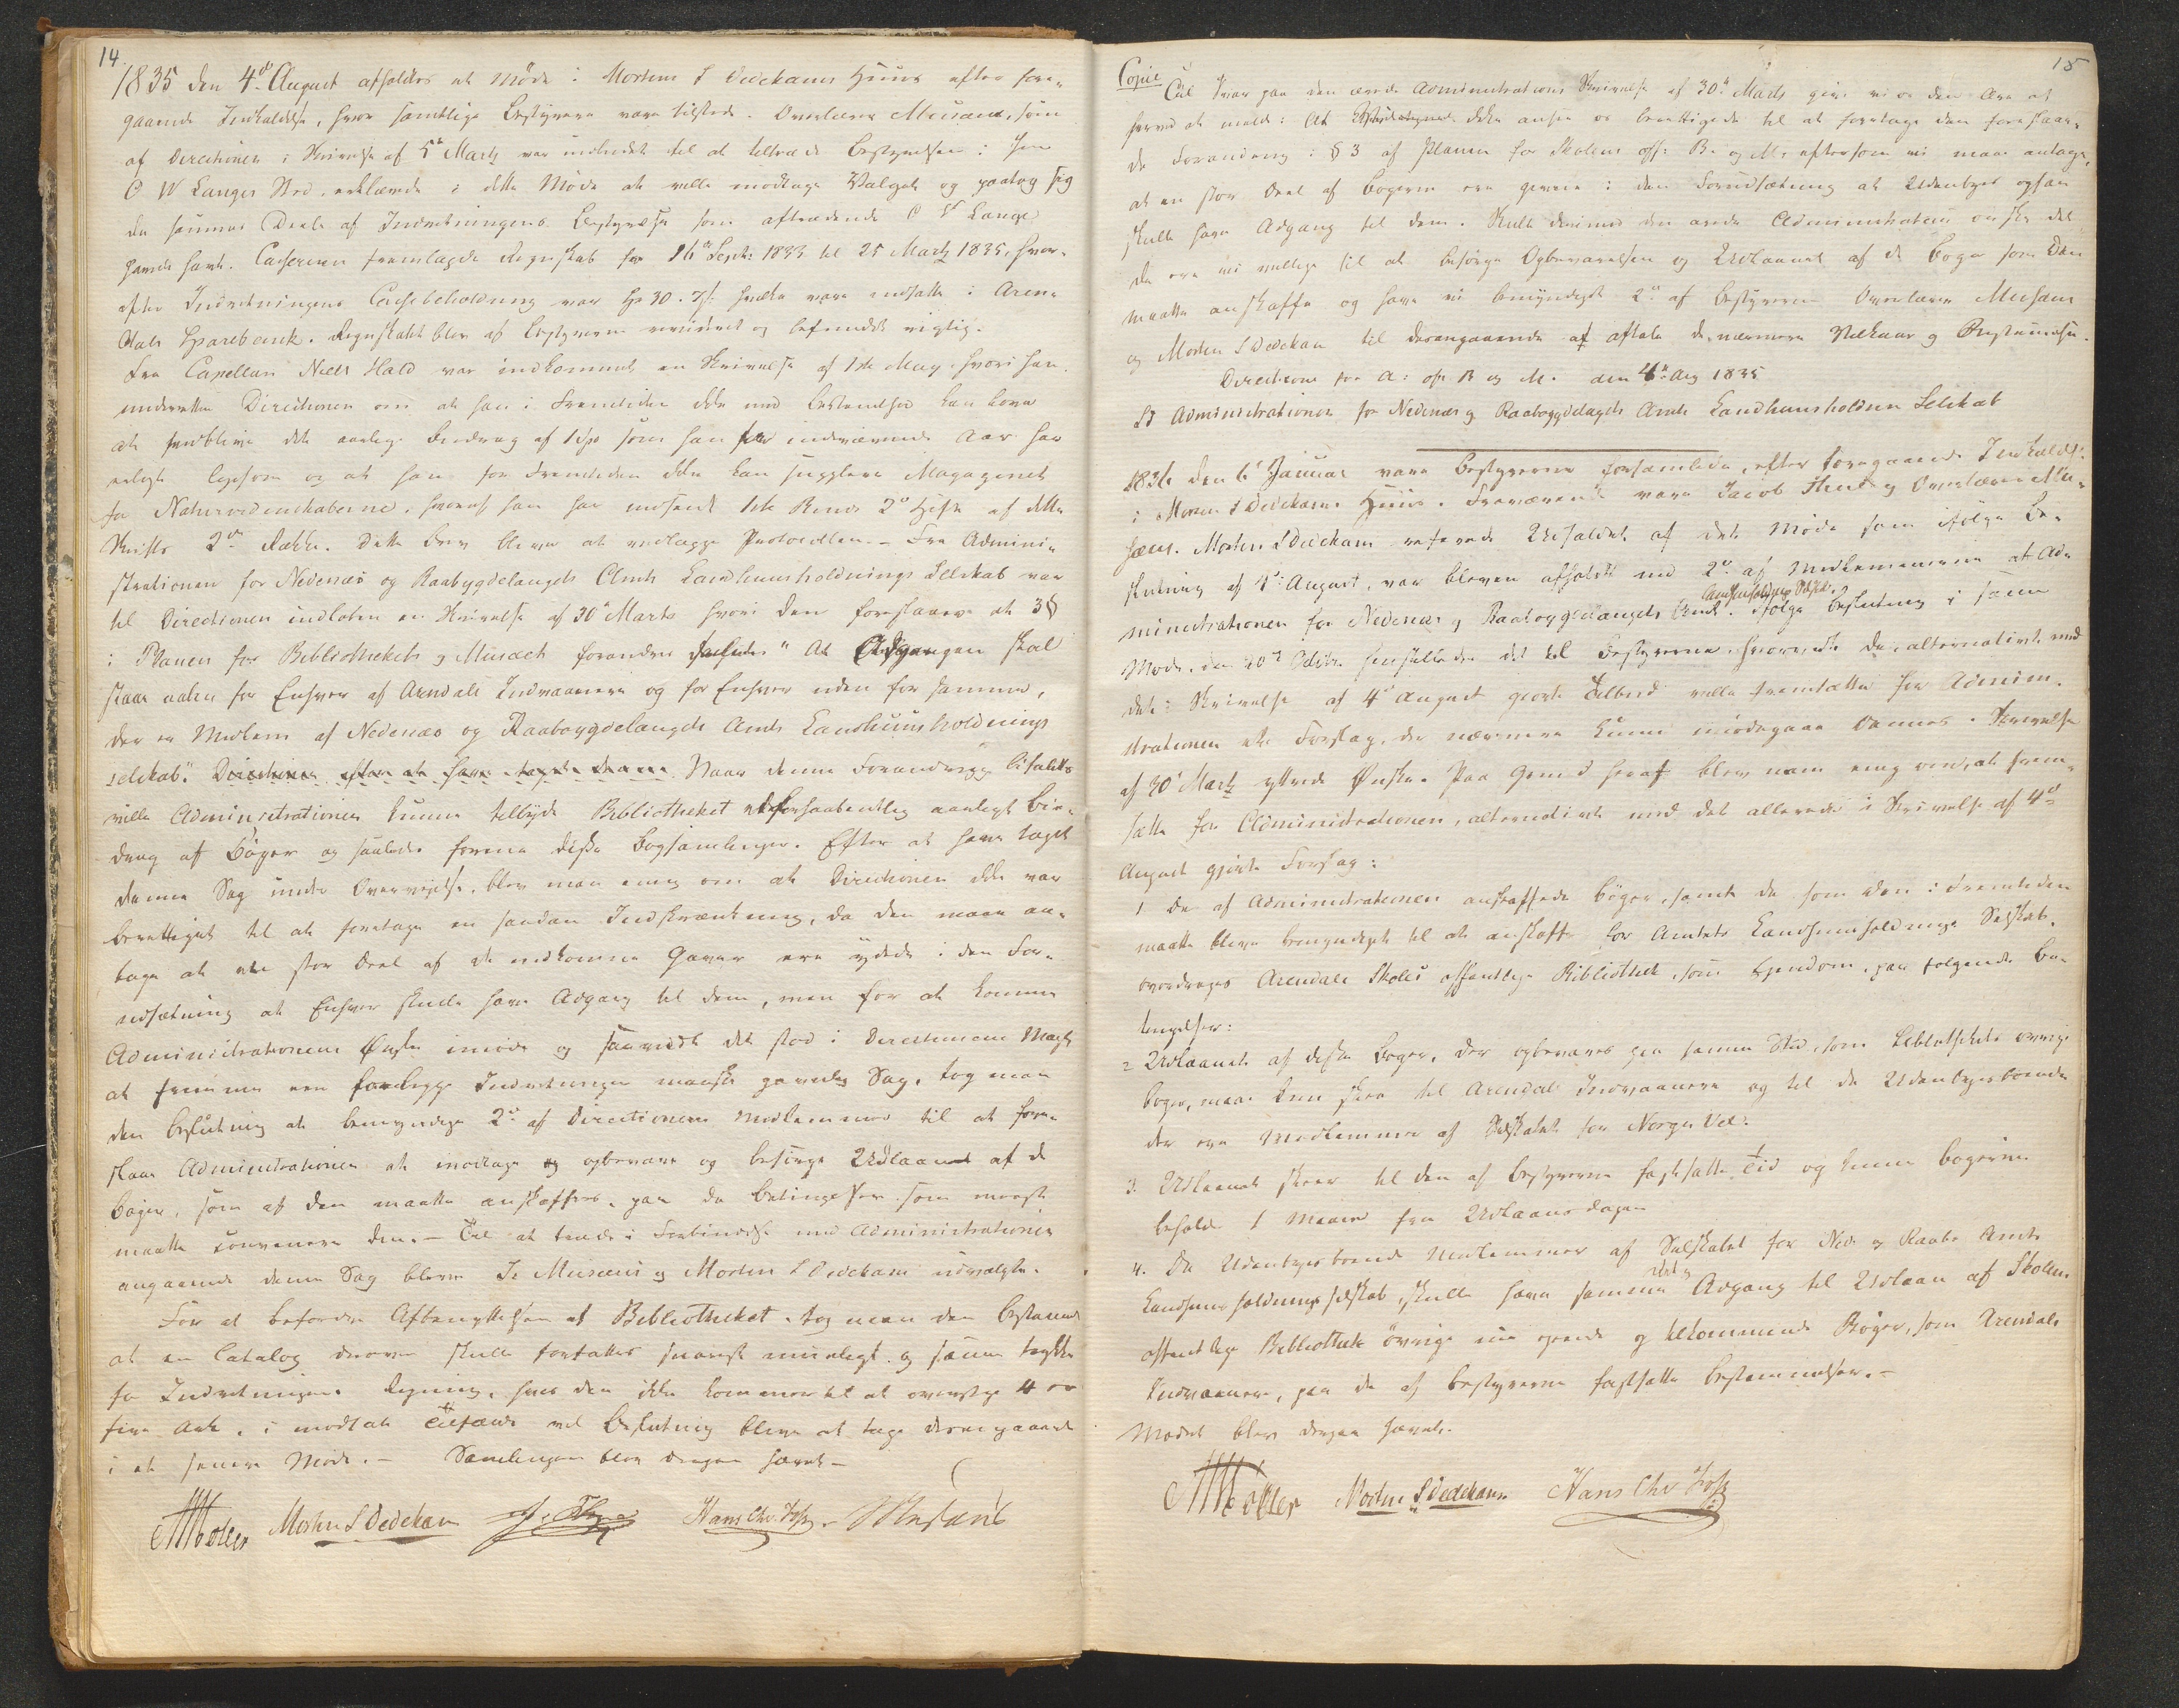 14.
1835 den 4de August afholdtes et Møde i Morten S Dedekams Huus efter fore-
gaaende Indkaldelse, hvor samtlige Bestyrere vare tilstede. Overlærer Musæus, som
af Directionen i Skrivelse af 5te Marts var indbudet til at tiltræde Bestyrelsen i
O W Langes Sted, erklærede i dette Møde at ville modtage Valget og paatog sig
den samme Deel af Indretningens Bestyrelse som aftrædende O W Lange
havde havt. Casereren fremlagde Regnskab fra 16de Septr: 1833 til 25 Marts 1835, hvor-
efter Indretningens Cassebeholdning var Sp 30. hvilke vare indsatte i Aren-
dals Sparebank. Regnskabet blev af Bestyrerne revideret og befundet rigtig.
Fra Capellan Niels Hald var indkommet en Skrivelse af 1ste May hvori han
underretter Directionen om at han i Fremtiden ikke med Bestemthed kan love
at vedblive det aarlige Bidrag af 1 Sp som han for indeværende Aar har
erlagt ligesom og at han for Fremtiden ikke kan supplere Magazinet
for Naturvidenskaberne, hvoraf han har indsendt 1ste Binds 2det Hefte af dette
Skrifts 2den Række. Dette Brev bliver at vedlægge Protocollen. – Fra Admini-
strationen for Nedenæs og Raabygdelaugets Amts Landhuusholdnings Selskab var
til Directionen indløben en Skrivelse af 30te Marts hvori den foreslaaer at 3§
i Planen for Bibliothekets og Musæets forandres saaledes "At Adgangen skal
staae aaben for Enhver af Arendals Indvaanere og for Enhver uden for samme,
der er Medlem af Nedenæs og Raabøygdelaugets Amts Landhuusholdnings
selskab." Directionen efter at have taget denne Naar denne Forandring bifaldtes
vilde Administrationen kunne tilbyde Bibliotheket et forhaabentlig aarligt Bi-
drag af Bøger og saaledes forene disse Bogsamlinger. Efter at have taget
denne Sag under Overveielse, blev man enig om at Directionen ikke var
berettiget til at foretage en saadan Indskrænkning, da den maa an-
tage at en stor Deel af de indkomne Gaver ere ydede i den For-
udsætning at Enhver skulde have Adgang til dem, men for at komme
Administrationens Ønske imøde og saavidt det stod i Directionens Magt
at fremme en for begge Indretninger maaske gavnlig Sag, tog man
den Beslutning at bemyndige 2de af Directionens Medlemmer til at fore-
slaae Administrationen at modtage og opbevare og besørge Udlaanet af de
Bøger, som af den maatte anskaffes, paa de Betingelser som meest
maatte convenere den. – Til at træde i Forbindelse med Administrationen
angaaende denne Sag bleve Hr Musæus og Morten S Dedekam udvalgte.
For at befordre Afbenyttelsen af Bibliotheket, tog man den Bestemmelse
at en Catalog derover skulde forfattes snarest mueligt og samme trykkes
for Indretningens Regning, hvis den ikke kommer til at overstige 4 er
fire Ark, i modsat Tilfælde vil Beslutning blive at tage desangaaende
i et senere Møde. – Samlingen blev derpaa hævet –
Møller Morten S Dedekam Hans Chr. Musæus
15
Copie
Til Svar paa den ærede Administrations Skrivelse af 30te Marts give vi os den Ære at
herved at melde: At ikke anser os berettigede til at foretage den foreslaae-
de Forandring i § 3 af Planen for Skolens off: B. og M: eftersom vi maa antage,
at en stor Deel af Bøgerne ere givne i den Forudsætning at Udenbyes ogsaa
skulle have Adgang til dem. Skulle derimod den ærede Administration ønske det
da ere vi villige til at besørge Opbevaringen og Udlaanet af de Bøger som Den
maatte anskaffe og have vi bemyndiget 2de af Bestyrerne Overlærer Musæus
og Morten S Dedekam til desangaaende at aftale de nærmere Vilkaar og Bestemmelser.
Directionen for A: off B og M. den 4de Aug 1835
Til Administrationen for Nedenæs og Raabygdelagets Amts Landhuusholdnings Selskab
1836 den 6te Januar vare Bestyrerne forsamlede, efter foregaaende Indkaldelse
i Morten S Dedekams Huus. Fraværende vare Jacob og Overlærer Mu-
sæus. Morten S Dedekam refererede Udfaldet af det Møde som ifølge Be-
slutning af 4de August, var bleven afholdt med 2de af Medlemmerne af Ad-
Landhuusholdnings Selskab.
ministrationen for Nedenæs og Raabøygdelaugets Amts. Ifølge Beslutning i samme
Møde, den 20de Octbr henstillede det til Bestyrerne, hvorvidt de, alternativt med
det i Skrivelse af 4de August giorte Tilbud ville fremsætte for Admini-
strationen et Forslag, der nærmere kunde imødegaae dennes i Skrivelse
af 30te Marts yttrede Ønske. Paa Grund heraf blev man enig om, at frem-
sætte for Administrationen, alternativt med det allerede i Skrivelse af 4de
August gjorte Forslag:
1 De af Administrationen anskaffede Bøger, samt de som den i Fremtiden
maatte blive bemyndiget til at anskaffe for Amtets Landhuusholdnings Selskab,
overdrages Arendals Skoles offentlige Bibliothek, som Eiendom, paa følgende Be-
tingelser:
2 Udlaanet af disse Bøger, der opbevares paa samme Sted, som Bibliothekets øvrige
Bøger, maa kun skee til Arendals Indvaanere og til de Udenbyesboende
der ere Medlemmer af Selskabet for Norges Vel.
3. Udlaanet skeer til den af Bestyrerne fastsatte Tid og kunne Bøgerne
beholdes 1 Maaned fra Udlaansdagen
4. De Udenbyesboende Medlemmer af Selskabet for Nede og Raabs Amts
Landhuusholdningsselskab, skulle have samme Adgang til Udlaan af Skolens
offentlige Bibliotheks øvrige nu eiende og tilkommende Bøger, som Arendals
Indvaanere, paa de af Bestyrerne fastsatte Bestemmelser. –
Mødet blev derpaa hævet.
Møller Morten S Dedekam Hans Chr